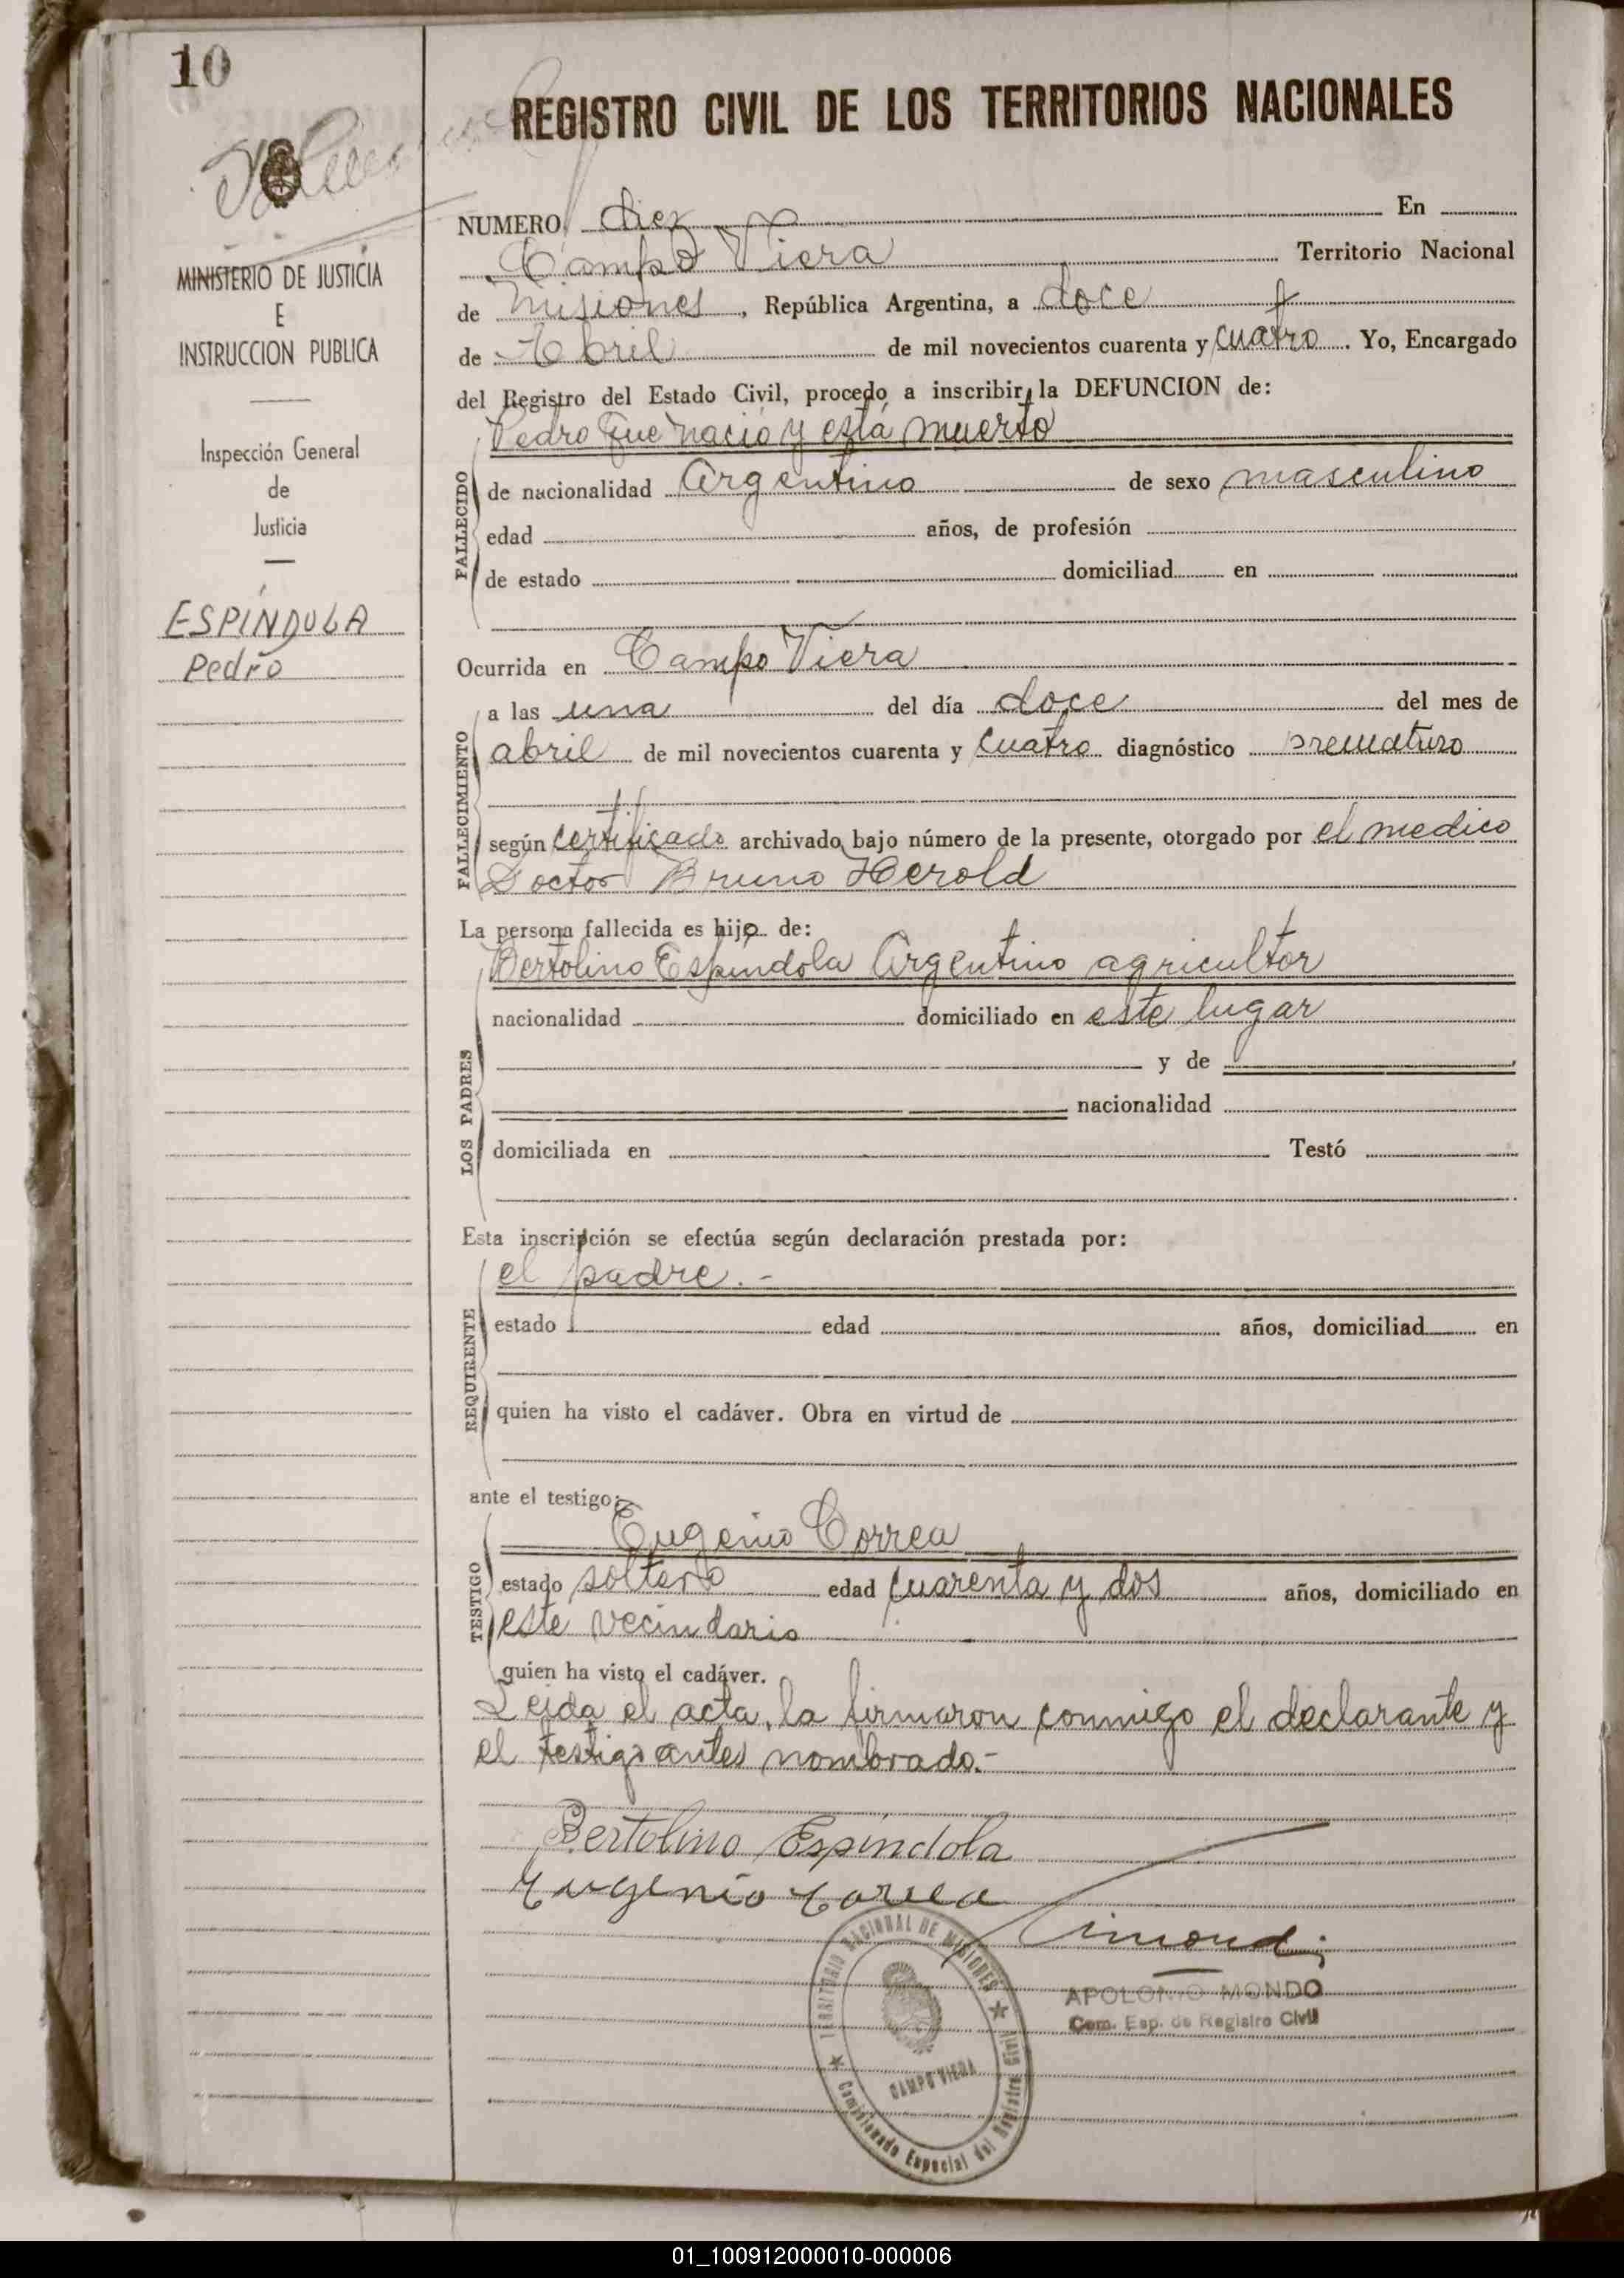 10
REGISTRO CIVIL DE LOS TERRITORIOS NACIONALES
MINISTERIO DE JUSTICIA
E
INSTRUCCION PUBLICA
Inspección General
de
Justicia
ESPÍNDOLA
Pedro
NUMERO diez En
Campo Viera Territorio Nacional
de Misiones, República Argentina, a doce
de Abril de mil novecientos cuarenta y cuatro. Yo, Encargado
del Registro del Estado Civil, procedo a inscribir la DEFUNCION de:
Pedro que nació y está muerto
FALLECIDO
de nacionalidad Argentino de sexo masculino
edad años, de profesión
de estado domiciliad en
Ocurrida en Campo Viera
FALLECIMIENTO
a las una del día doce del mes de
abril de mil novecientos cuarenta y cuatro diagnóstico prematuro
según certificado archivado bajo número de la presente, otorgado por el medico
Doctor Bruno Herold
La persona fallecida es hijo de:
LOS PADRES
Bertolino Espindola Argentino agricultor
nacionalidad domiciliado en este lugar
y de
nacionalidad
domiciliada en Testó
Esta inscripción se efectúa según declaración prestada por:
REQUIRENTE
el padre.-
estado edad años, domiciliad en
quien ha visto el cadáver. Obra en virtud de
ante el testigo:
TESTIGO
Eugenio Correa
estado soltero edad cuarenta y dos años, domiciliado en
este vecindario
quien ha visto el cadáver.
Leida el acta, la firmaron conmigo el declarante y
el testigo antes nombrado.-
Bertolino Espíndola
Eugenio Correa
TERRITORIO NACIONAL DE MISIONES
CAMPO VIERA
Comisionado Especial del Registro Civil
APOLONIO MONDO
Com. Esp. de Registro Civil
01_100912000010-000006